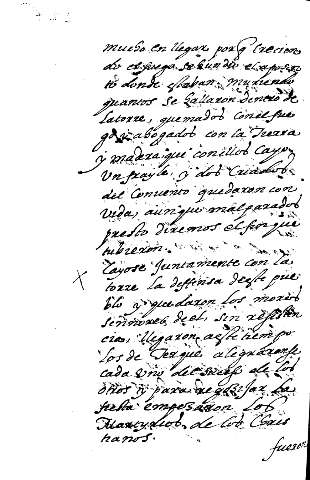 mucho en llegar porq̃ crecien
do el fuego se hundio el aposen
to donde estaban muriendo
quantos se hallaron dentro de
la torre, quemados con el fue
go y abogados con la tierra
y madera que con ellos cayo
Un frayle y dos Criados
del Convento quedaron con
vida, aunque mal parados
presto diremos el fin que
tubieron.
Cayose Juntamente con la
torre la deffensa deste pue
blo y quedaron los moros
señores del sin resisten
cia, llegaron a este tiempo
los de Terque alegraronse
cada uno del suceso de los
otros y para regosijar la
fiesta empesaron los
Martyrios de los Cris
tianos.
fueron